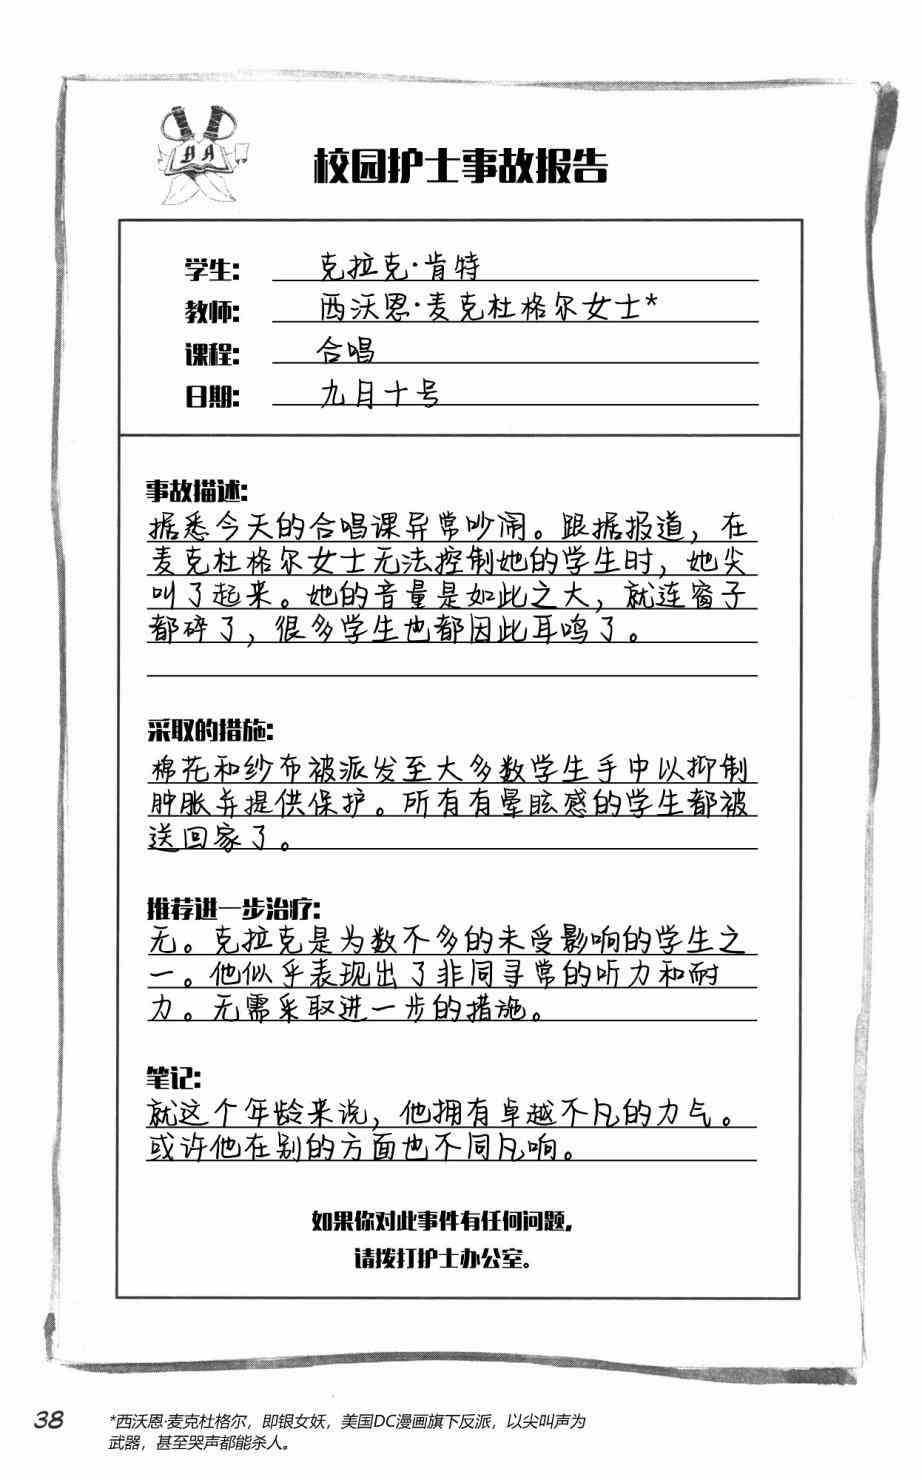 校园护士事故报告
学生: 克拉克·肯特
教师: 西沃恩·麦克杜格尔女士*
课程: 合唱
日期: 九月十号
事故描述:
据悉今天的合唱课异常吵闹。跟据报道，在
麦克杜格尔女士无法控制她的学生时，她尖
叫了起来。她的音量是如此之大，就连窗子
都碎了，很多学生也都因此耳鸣了。
采取的措施:
棉花和纱布被派发至大多数学生手中以抑制
肿胀并提供保护。所有有晕眩感的学生都被
送回家了。
推荐进一步治疗:
无。克拉克是为数不多的未受影响的学生之
一。他似乎表现出了非同寻常的听力和耐
力。无需采取进一步的措施。
笔记:
就这个年龄来说，他拥有卓越不凡的力气。
或许他在别的方面也不同凡响。
如果你对此事件有任何问题，
请拨打护士办公室。
38
*西沃恩·麦克杜格尔，即银女妖，美国DC漫画旗下反派，以尖叫声为
武器，甚至哭声都能杀人。